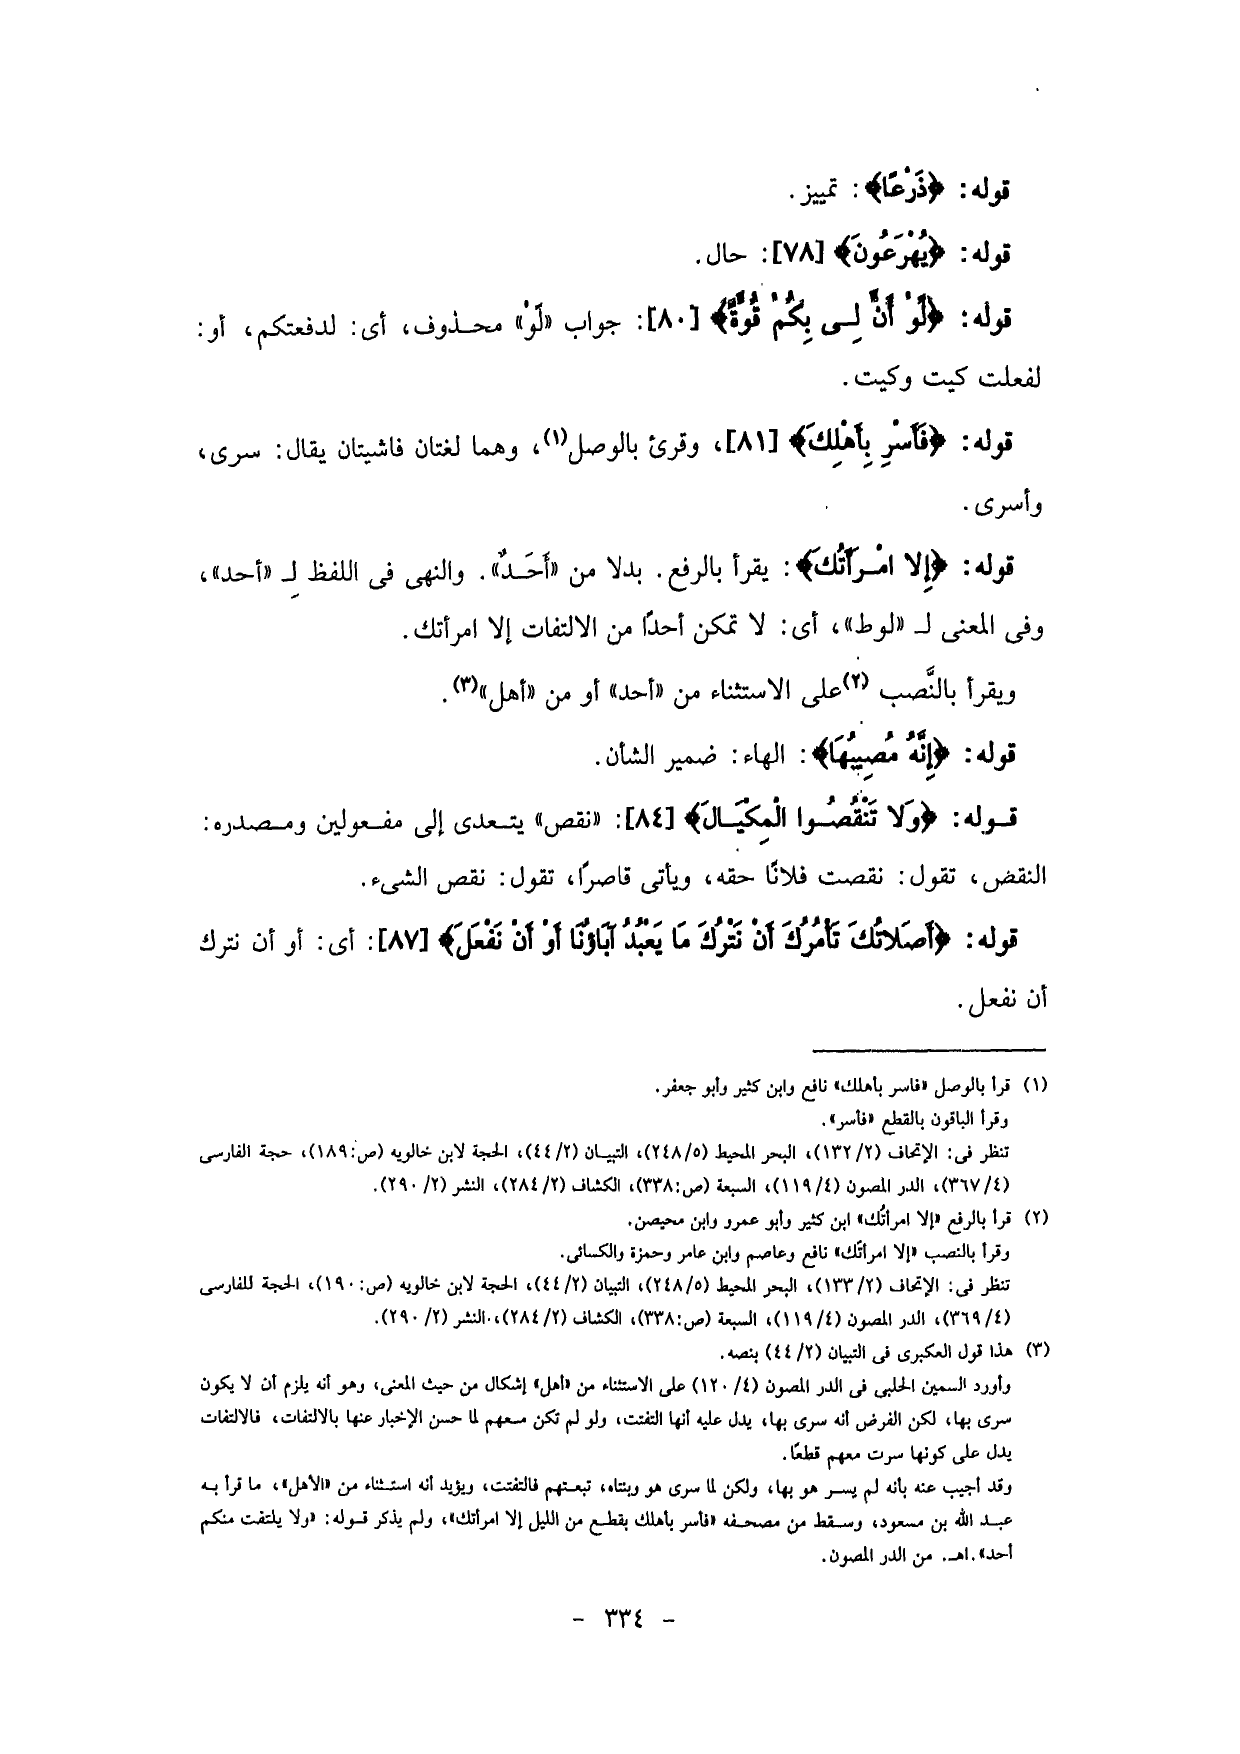 قوله: ﴿ذَرْعًا﴾: تمييز.
قوله: ﴿يُهْرَعُونَ﴾ [٧٨]: حال.
قوله: ﴿لَوْ أَنَّ لِى بِكُمْ قُوَّةً﴾ [٨٠]: جواب «لَوْ» محذوف، أى: لدفعتكم، أو:
لفعلت كيت وكيت.
قوله: ﴿فَأَسْرِ بِأَهْلِكَ﴾ [٨١]، وقرئ بالوصل(١)، وهما لغتان فاشيتان يقال: سرى،
وأسرى.
قوله: ﴿إِلا امْرَأَتُكَ﴾: يقرأ بالرفع. بدلا من «أَحَدٌ». والنهى فى اللفظ لِـ «أحد»،
وفى المعنى لـ «لوط»، أى: لا تمكن أحدًا من الالتفات إلا امرأتك.
ويقرأ بالنَّصب (٢)على الاستثناء من «أحد» أو من «أهل»(٣).
قوله: ﴿إِنَّهُ مُصِيبُهَا﴾: الهاء: ضمير الشأن.
قوله: ﴿وَلَا تَنْقُصُوا الْمِكْيَالَ﴾ [٨٤]: «نقص» يتعدى إلى مفعولين ومصدره:
النقض، تقول: نقصت فلانًا حقه، ويأتى قاصرًا، تقول: نقص الشىء.
قوله: ﴿أَصَلاتُكَ تَأْمُرُكَ أَنْ نَتْرُكَ مَا يَعْبُدُ آبَاؤُنَا أَوْ أَنْ نَفْعَلَ﴾ [٨٧]: أى: أو أن نترك
أن نفعل.
(١) قرأ بالوصل «فاسر بأهلك» نافع وابن كثير وأبو جعفر.
وقرأ الباقون بالقطع «فأسر».
تنظر فى: الإتحاف (٢/ ١٣٢)، البحر المحيط (٥/ ٢٤٨)، التبيان (٢/ ٤٤)، الحجة لابن خالويه (ص:١٨٩)، حجة الفارسى
(٤/ ٣٦٧)، الدر المصون (٤/ ١١٩)، السبعة (ص:٣٣٨)، الكشاف (٢/ ٢٨٤)، النشر (٢/ ٢٩٠).
(٢) قرأ بالرفع «إلا امرأتُك» ابن كثير وأبو عمرو وابن محيصن.
وقرأ بالنصب «إلا امرأتَك» نافع وعاصم وابن عامر وحمزة والكسائى.
تنظر فى: الإتحاف (٢/ ١٣٣)، البحر المحيط (٥/ ٢٤٨)، التبيان (٢/ ٤٤)، الحجة لابن خالويه (ص:١٩٠)، الحجة للفارسى
(٤/ ٣٦٩)، الدر المصون (٤/ ١١٩)، السبعة (ص:٣٣٨)، الكشاف (٢/ ٢٨٤)، النشر (٢/ ٢٩٠).
(٣) هذا قول العكبرى فى التبيان (٢/ ٤٤) بنصه.
وأورد السمين الحلبى فى الدر المصون (٤/ ١٢٠) على الاستثناء من «أهل» إشكال من حيث المعنى، وهو أنه يلزم أن لا يكون
سرى بها، لكن الفرض أنه سرى بها، يدل عليه أنها التفتت، ولو لم تكن معهم لما حسن الإخبار عنها بالالتفات، فالالتفات
يدل على كونها سرت معهم قطعًا.
وقد أجيب عنه بأنه لم يسر هو بها، ولكن لما سرى هو وبنتاه، تبعتهم فالتفتت، ويؤيد أنه استثناء من «الأهل»، ما قرأ به
عبد الله بن مسعود، وسقط من مصحفه «فأسر بأهلك بقطع من الليل إلا امرأتك»، ولم يذكر قوله: «ولا يلتفت منكم
أحد».اهـ. من الدر المصون.
- ٣٣٤ -